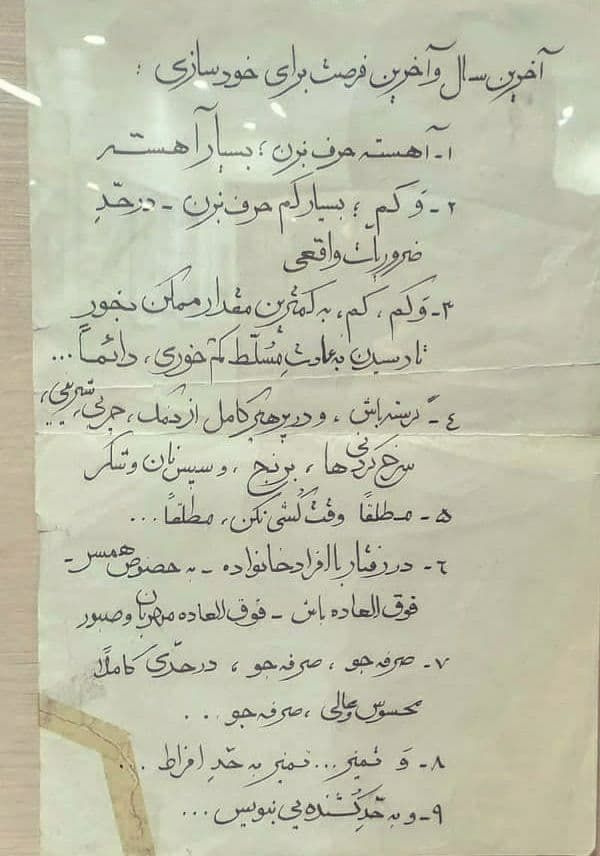 آخرین سال و آخرین فرصت برای خودسازی :
۱- آهسته حرف بزن ؛ بسیار آهسته
۲- وَ کم ؛ بسیار کم حرف بزن - در حدِّ
ضروریات واقعی
۳- وَ کم ، کم ، به کمترین مقدار ممکن بخور
تا رسیدن به عادتِ مُسلّط کم خوری ، دائماً ...
٤- گرسنه باش ، و در پرهیز کامل از نمک ، چربی ، شیرینی ،
سرخ کردنی ها ، برنج ، و سپس نان و شکر
۵- مطلقاً وقت کُشی نکن ، مطلقاً ...
٦- در رفتار با افراد خانواده - به خصوص همسر -
فوق العاده باش - فوق العاده مهربان و صبور
۷- صرفه جو ، صرفه جو ، در حدّی کاملاً
محسوس و عالی ، صرفه جو . . .
۸- وَ تمیز ... تمیز به حدِ افراط ...
۹- و به حَدِّ کُشنده یی بنویس ...